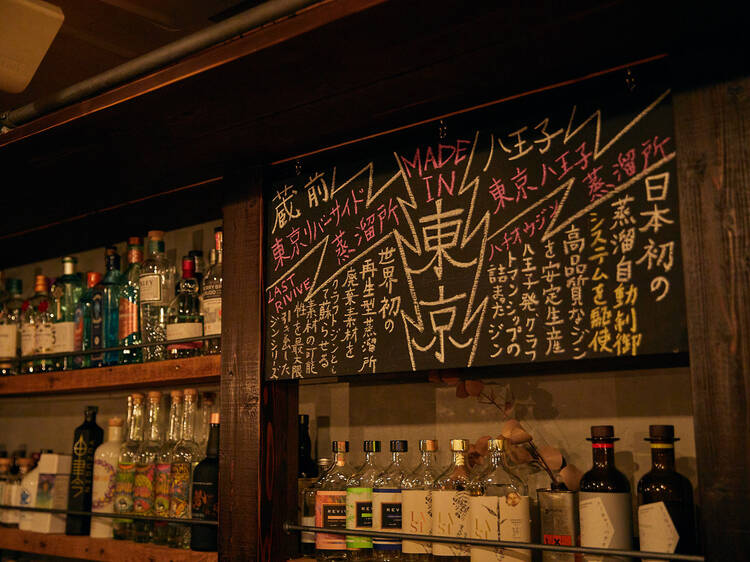 蔵前
東京リバーサイド
蒸溜所
LAST
RIVIVE
世界初の
再生型蒸溜所
廃棄素材を
て蘇らせる
素材の可能
性を最大限
引き出した
ジンシリーズ
MADE
IN
東京
八王子
東京八王子
蒸溜所
ハチオウジン
日本初の
蒸溜自動制御
システムを駆使
高品質なジン
を安定生産
八王子発、クラフ
トマンシップの
詰まったジン